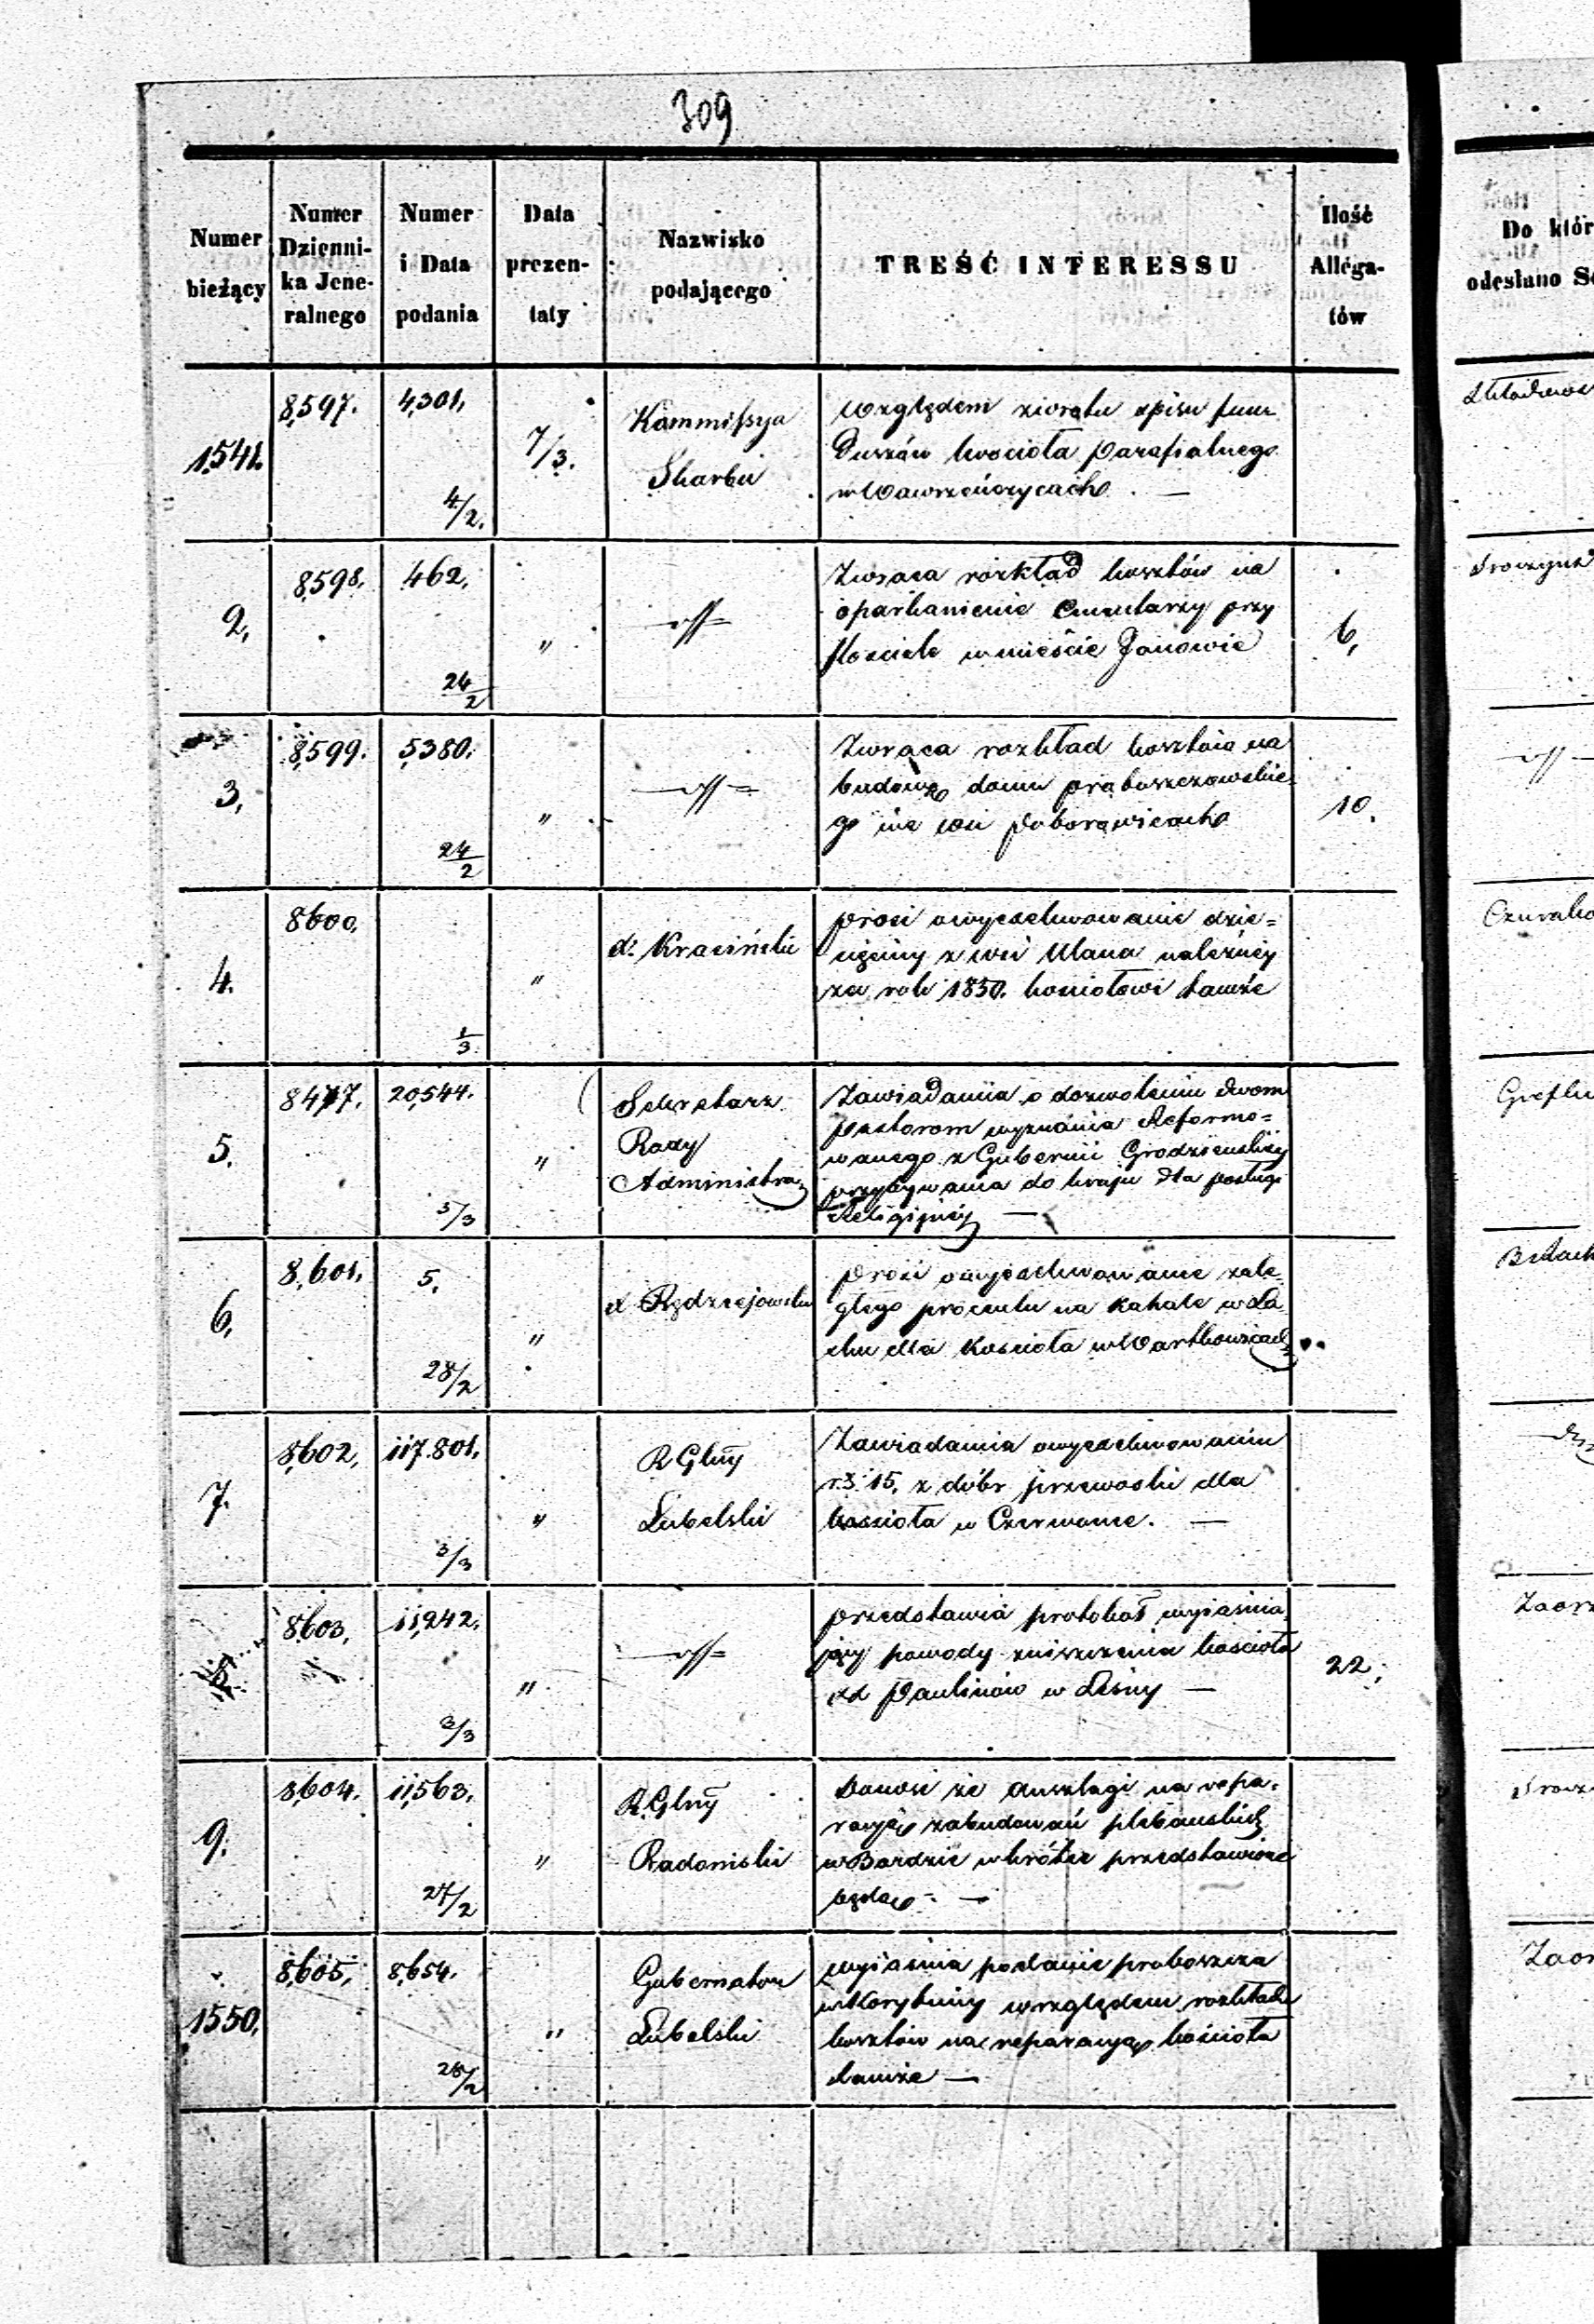 309
Numer bieżący | Numer Dzienni-ka Jene-ralnego | Numer i Data podania | Data prezen-taty | Nazwisko podającego | TREŚĆ INTERESSU | Ilość Allega-tów
Do któr
odesłano
1,541. | 8,597. | 4,301, 4/2. | 7/3. | Kommissya Skarbu
względem zwrotu spisu fun
duszów kościoła Parafialnego
w Wawrzeńczycach. —
2, | 8,598, | 462, 24/2 | " | —//— | 6,
Zwraca rozkład kosztów na
oparkanienie Cmentarzy przy
Kościele w mieście Janowie
3, | 8,599. | 5,380. 24/2 | " | —//— | 10.
Zwraca rozkład kosztów na
budowę domu proboszczowskie-
go we wsi Poborowicach
4. | 8,600, | 1/3 | " | d: Krasiński
prosi o wyexekwowanie dzie=
sięciny z wsi Ulana należnéy
za rok 1850. kościołowi tamże
5. | 8477. | 20,544. 5/3 | " | Sekretarz Rady Administra
Zawiadamia o dozwoleniu dwom
pastorom wyznania Reformo=
wanego z Gubernii Grodzieńskiéy
przybywania do kraju dla posługi
Religijnéy —
6, | 8,601, | 5, 28/2 | " | Rędziejowski
Prosi o wyexekwowanie zale-
głego procentu na Kahale w Ła
dla Kościoła w Wartkowicach
7. | 8,602, | 117.801, 3/3 | " | R Glny Lubelski
Zawiadamia o wyexekwowaniu
rs. 15, z dóbr przewoski dla
kościoła w Czerwonce. —
8 | 8,603, | 11,242, 3/3 | " | —//— | 22,
przedstawia protokół wyiaśnia
jący powody zniszczenia kościoła
xx Paulinów w Leśny —
9. | 8,604. | 11,563, 27/2 | " | R. Glny Radomski
Donosi że Anszlagi na repa-
racyę zabudowań plebańskich
w Bardzie wkrótce przedstawione
będą —
1550, | 8,605, | 8,654. 28/2 | " | Gubernator Lubelski
wyiaśnia podanie proboszcza
w Korytnicy względem rozkładu
kosztów na reparacyę kościoła
tamże —